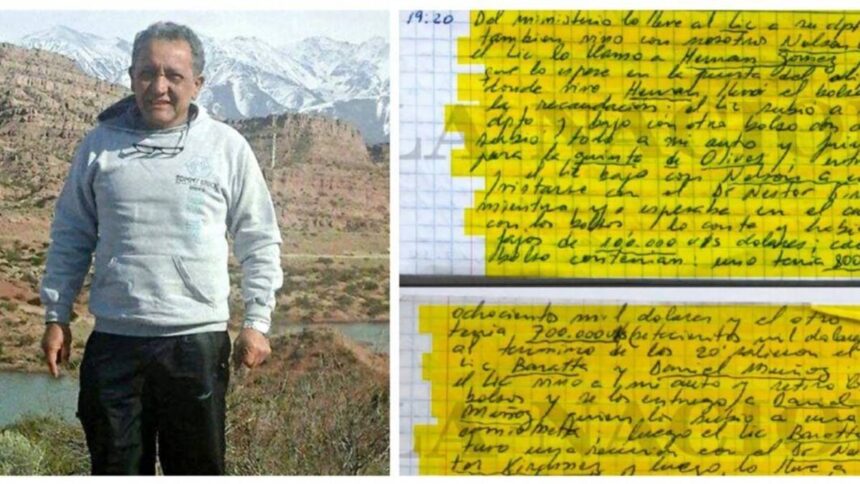 TOMMY
19:20 Del ministerio lo lleve al Lic a su dpto
tambien vino con nosotro Nelson
el Lic lo llamo a Hernan Gomez
que lo espere en la puerta del
donde vive Hernan llevó el bolso
la recaudacion; el Lic subio a
dpto y bajo con otro bolso con
subio todo a mi auto y
para la quinta de Olivos
el Lic bajo con Nelson a
con el Dr Nestor
mientra yo esperaba en el
con los bolsos, lo conte y habia
fajos de 100.000 u$s dolares; cada
bolso contenian: uno tenia 800
ochociento mil dolares y el otro
tenia 700.000 u$s (setecientos mil dolares
al termino de los 20 el
Lic Baratta y Daniel Muñoz
el Lic vino a mi auto y retiro lo
bolsos y se los entrego a Daniel
Muñoz, quien los subio a una
camioneta; luego el Lic Baratta
tuvo una reunion con el Dr Nes
tor Kirchner y luego lo lleve a
LA NACION
LA NACION